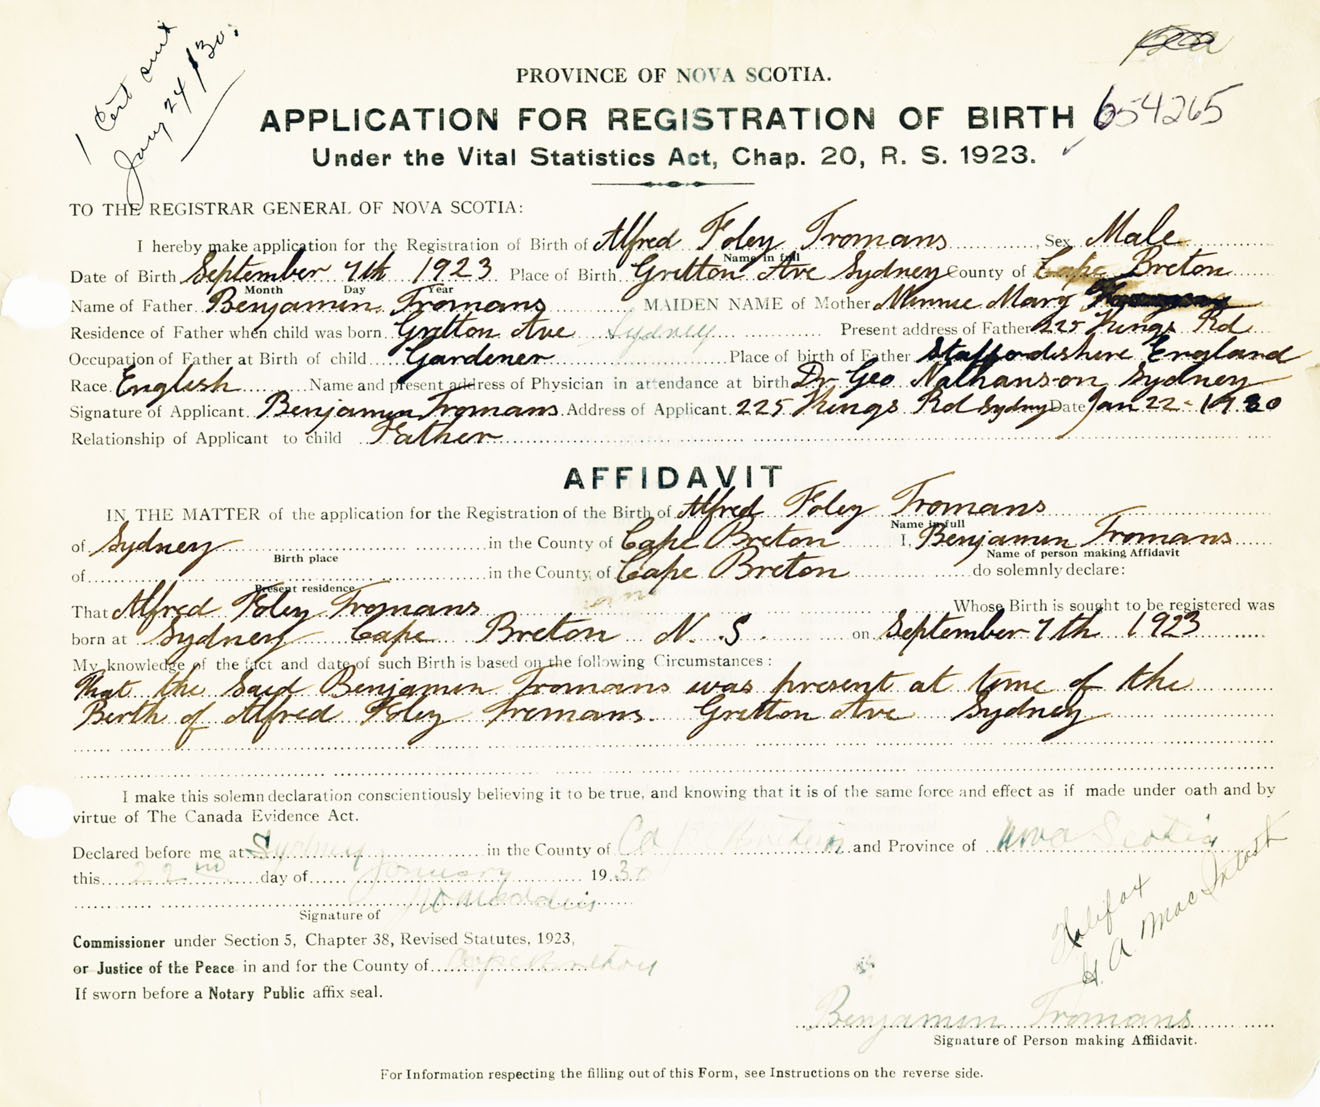 1 Cert sent
Jany 24/30.
PROVINCE OF NOVA SCOTIA.
APPLICATION FOR REGISTRATION OF BIRTH 654265
Under the Vital Statistics Act, Chap. 20, R. S. 1923.
TO THE REGISTRAR GENERAL OF NOVA SCOTIA:
I hereby make application for the Registration of Birth of Alfred Foley Tromans, Sex Male
Name in full
Date of Birth September 7th 1923 Place of Birth Gretton Ave Sydney County of Cape Breton
Month Day Year
Name of Father Benjamin Tromans MAIDEN NAME of Mother Minnie Mary
Residence of Father when child was born Gretton Ave Sydney Present address of Father 225 Kings Rd
Occupation of Father at Birth of child Gardener Place of birth of Father Staffordshire England
Race. English Name and present address of Physician in attendance at birth Dr Geo Nathanson, Sydney
Signature of Applicant. Benjamin Tromans. Address of Applicant. 225 Kings Rd Sydney Date Jan 22 - 1930
Relationship of Applicant to child Father
AFFIDAVIT
IN THE MATTER of the application for the Registration of the Birth of Alfred Foley Tromans
Name in full
of Sydney in the County of Cape Breton I, Benjamin Tromans
Birth place Name of person making Affidavit
of in the County of Cape Breton do solemnly declare:
Present residence
That Alfred Foley Tromans Whose Birth is sought to be registered was
born at Sydney Cape Breton N. S. on September 7th 1923
My knowledge of the fact and date of such Birth is based on the following Circumstances:
That the Said Benjamin Tromans was present at time of the
Birth of Alfred Foley Tromans. Gretton Ave Sydney
I make this solemn declaration conscientiously believing it to be true, and knowing that it is of the same force and effect as if made under oath and by
virtue of The Canada Evidence Act.
Declared before me at Sydney in the County of Cape Breton and Province of Nova Scotia
this 22nd day of January 1930
Signature of
Commissioner under Section 5, Chapter 38, Revised Statutes, 1923,
or Justice of the Peace in and for the County of Cape Breton
If sworn before a Notary Public affix seal.
Halifax
H. A. MacIntosh
Benjamin Tromans
Signature of Person making Affiidavit.
For Information respecting the filling out of this Form, see Instructions on the reverse side.